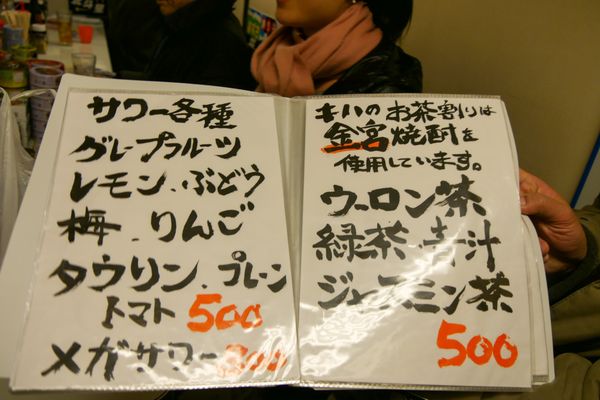 サワー各種
グレープフルーツ
レモン、ぶどう
梅、りんご
タウリン、プレーン
トマト 500
メガサワー 800
キハのお茶割りは
金宮焼酎を
使用しています。
ウーロン茶
緑茶・青汁
ジャスミン茶
500